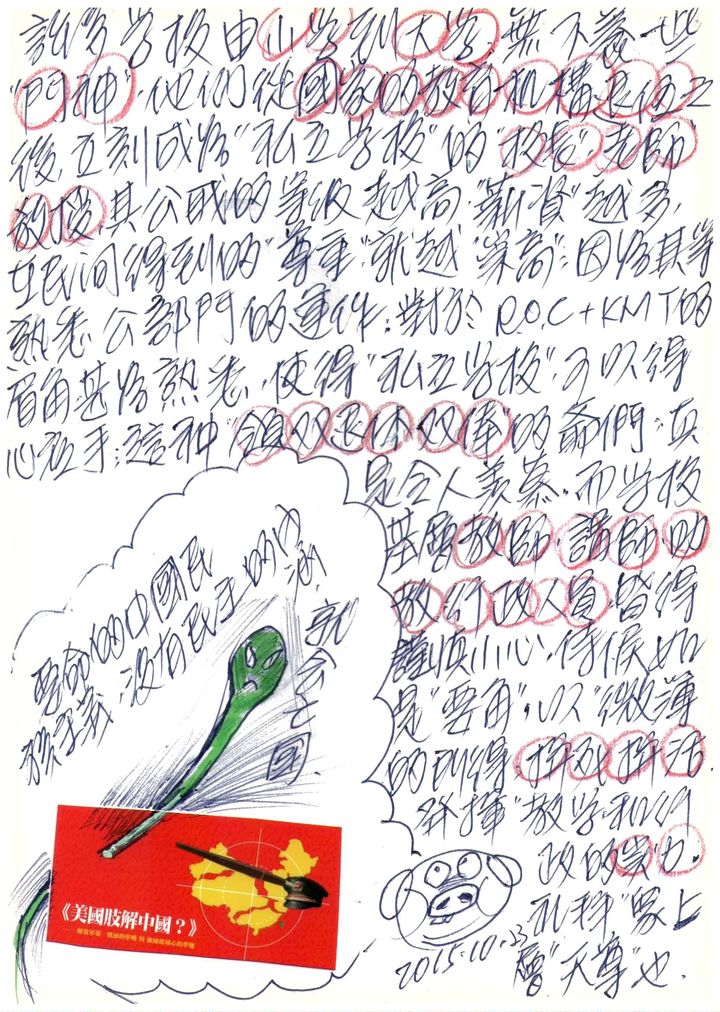 許多学校由小学到大学,無不養一些
"門神",他們從國家的教育机構退伍之
後,立刻成為"私立学校"的"校長",老師
教授,其公職的等級越高,"薪資"越多,
在民间得到的"尊重"就越"崇高";因為其等
熟悉公部門的運作,對於R.O.C+KMT的
眉角甚為熟悉,使得"私立学校"可以得
心应手;這种"領双退休双俸"的爺們,真
是令人羨慕,而学校
基層教師、講師、助
教、行政人員,皆得
謹慎小心,侍候如
是"要角",以"微薄
的所得,拚死拚活
發揮"教学和行
政的
孔拜"眾上
層"天尊"也.
要命的中國民
族主義,沒有民主的内涵,
就会亡國.
《美國肢解中國?》
2015.10.23